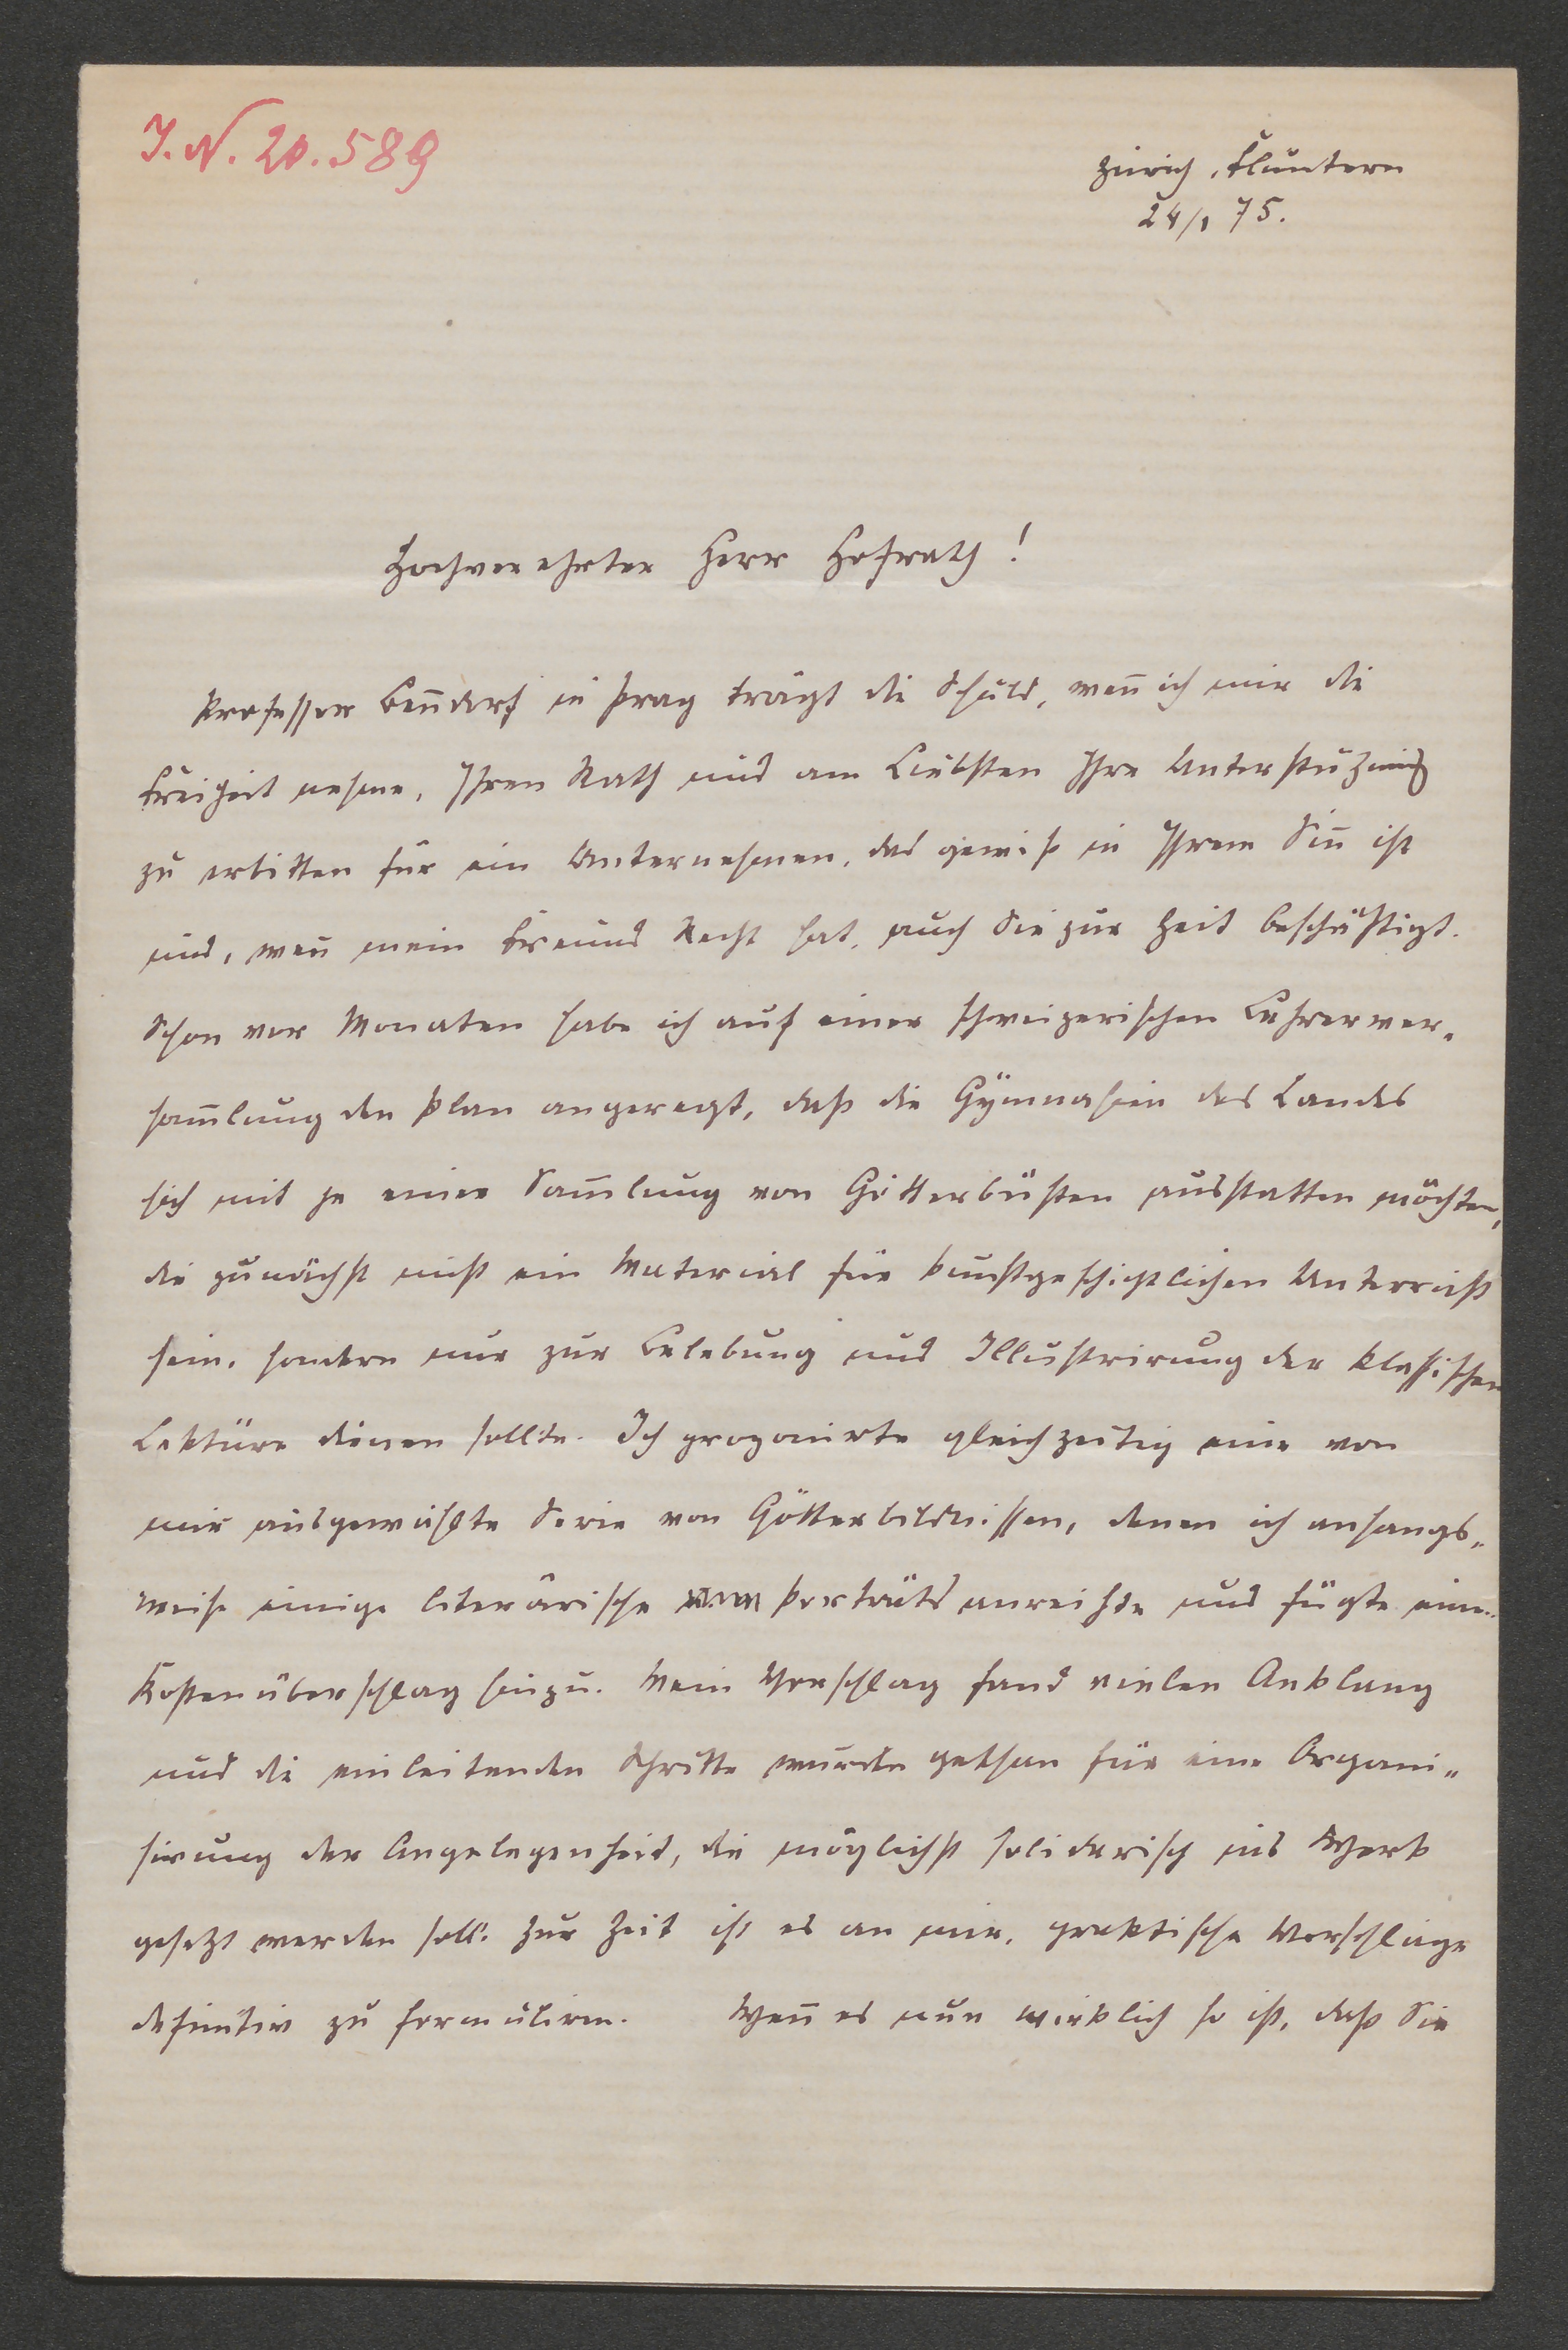 J. N. 20.589
Zürich, Fluntern
24/1 75.
Hochverehrter Herr Hofrath!
Professor Beñdorf in Prag trägt die Schuld, weñ ich mir die
Freiheit nehme, Ihren Rath und am Liebsten Ihre Unterstützung
zu erbitten für ein Unternehmen, das gewiß in Ihrem Siñ ist
und, weñ mein Freund Recht hat, auch Sie zur Zeit beschäftigt.
Schon vor Monaten habe ich auf einer schweizerischen Lehrerver-
sam̄lung den Plan angeregt, daß die Gymnasien des Landes
sich mit je einer Sam̄lung von Götterbüsten ausstatten möchten,
die zunächst nicht ein Material für kunstgeschichtlichen Unterricht
sein, sondern nur zur Belebung und Illustrirung der klassischen
Lektüre dienen sollte. Ich proponirte gleichzeitig eine von
mir ausgewählte Serie von Götterbildnissen, denen ich anhangs„
weise einige literarische Porträts anreihte und fügte einen
Kostenüberschlag hinzu. Mein Vorschlag fand vielen Anklang
und die einleitenden Schritte wurden gethan für eine Organi„
sirung der Angelegenheit, die möglichst solidarisch ins Werk
gesetzt werden soll. Zur Zeit ist es an mir, praktische Vorschläge
definitiv zu formuliren. Weñ es nun wirklich so ist, daß Sie